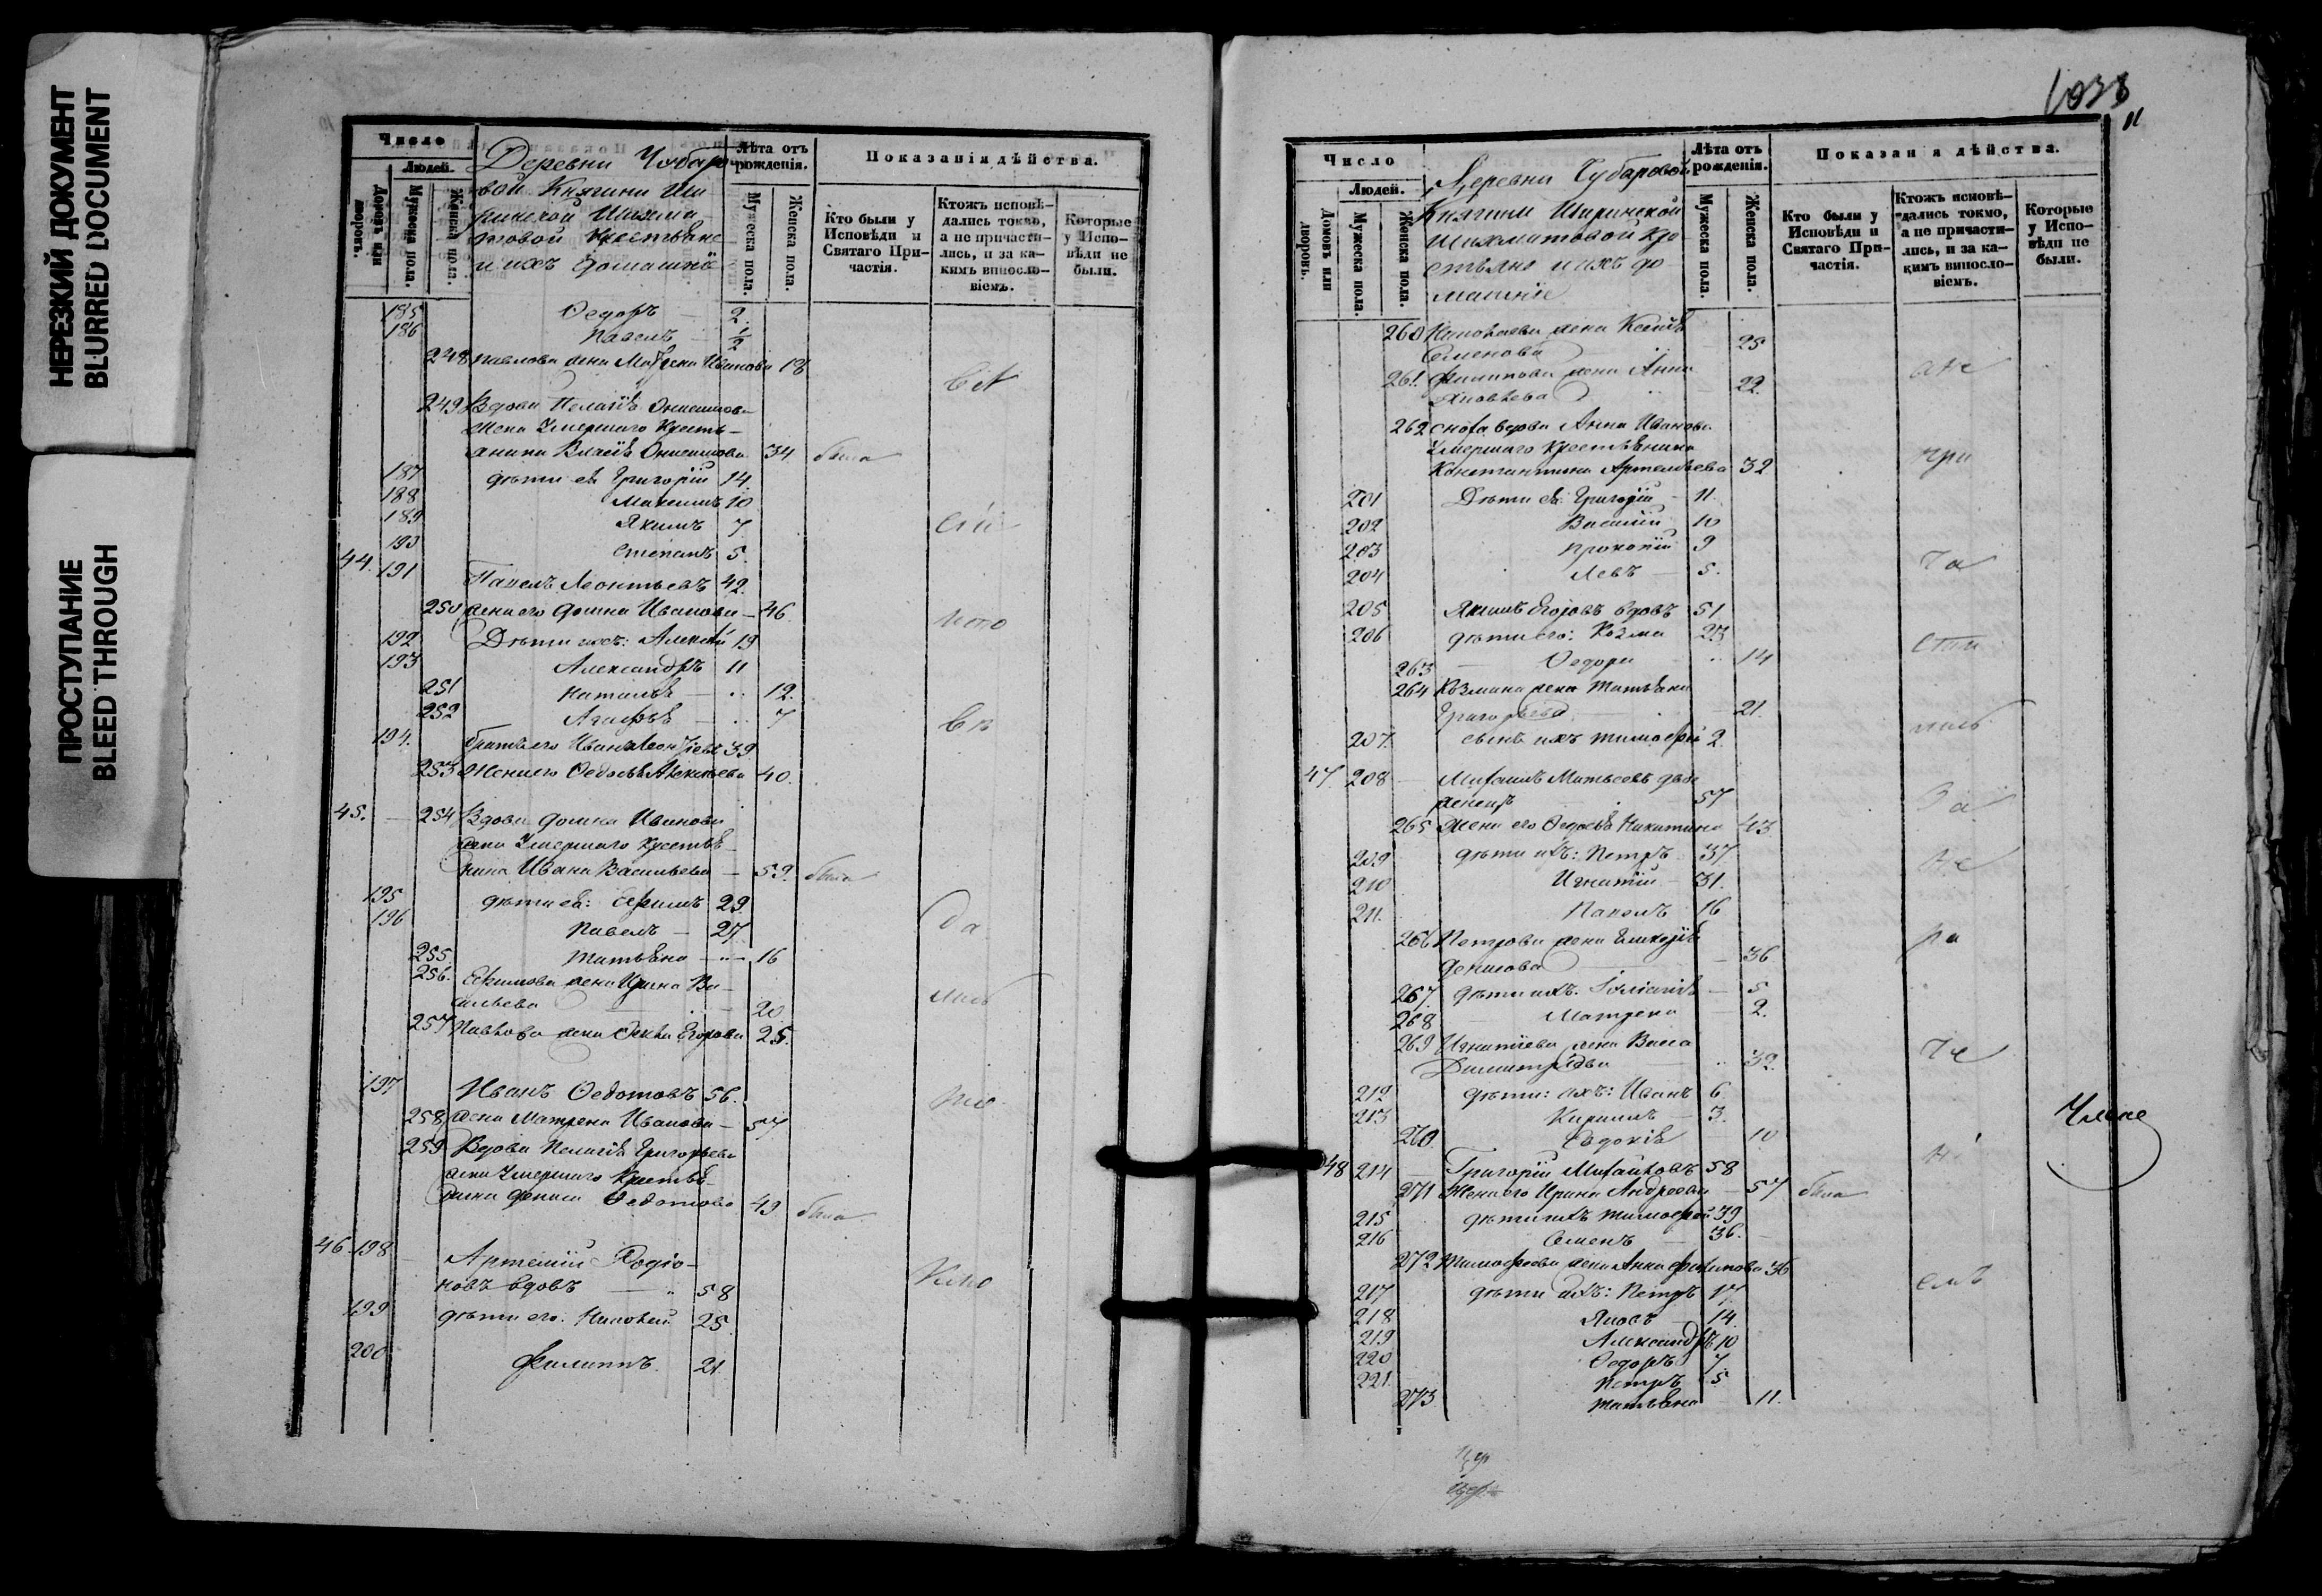 НЕРЕЗКИЙ ДОКУМЕНТ
BLURRED DOCUMENT
ПРОСТУПАНИЕ
BLEED THROUGH
Число
Людей.
Домовъ или дворовъ.
Мужеска пола.
Женска пола.
Деревни Чубаро-
вой Княгини Ши
ринской Шихма
товой Крестьяне
и ихъ домашніе
Лѣта отъ рожденія.
Мужеска пола.
Женска пола.
Показанія дѣйства.
Кто были у
Исповѣди и
Святаго При-
частія.
Ктожъ исповѣ-
дались токмо,
а не причасти-
лись, и за ка-
кимъ виносло-
віемъ.
Которые
у Испо-
вѣди не
были.
185 Ѳедоръ 2
186 Павелъ ½
248 Павлова жена Матрена Иванова 18
249 Вдова Пелагія Онисимова
жена Умершаго Кресть-
янина Власія Онисимова 34 была
187 дѣти ея Григорій 14
188 Максимъ 10
189 Якимъ 7
190 Степанъ 5
44. 191 Леонтьевъ 42.
250 жена его Домна Иванова 46
192 Дѣти ихъ: Алексѣй 19
193 Александръ 11
251 Наталья 12.
252 7
194. братъ его Иванъ Леонтьевъ 39
253 Жена его Ѳедосья 40.
45. 254 Вдова Домна Иванова
жена Умершаго крестья-
нина Ивана Васильева 59. была
195 дѣти ея: Ефимъ 29
196 Павелъ 27
255 Татьяна 16
256. Ефимова жена Ирина Ва-
сильева 20
257 Павлова жена Егорова 25.
197 Иванъ Ѳедотовъ 56.
258 жена Матрена Иванова 57
259 Вдова Пелагія Григорьева
жена Умершаго Крестья-
нина Дениса Ѳедотова 49 была
46 198 Артемій Родіо-
новъ вдовъ 58
199 дѣти его: 25
200 Филиппъ 21
1038
11
Число
Людей.
Домовъ или дворовъ.
Мужеска пола.
Женска пола.
Деревни Чубаровой
Княгини Ширинской
Шихматовой Кре-
стьяне и ихъ до
машніе
Лѣта отъ рожденія.
Мужеска пола.
Женска пола.
Показанія дѣйства.
Кто были у
Исповѣди и
Святаго При-
частія.
Ктожъ исповѣ-
дались токмо,
а не причасти-
лись, и за ка-
кимъ виносло-
віемъ.
Которые
у Испо-
вѣди не
были.
260 жена
Семенова 25
261. Филипова жена Анна
Яковлева 22.
262 сноха вдова Анна Иванова
Умершаго Крестьянина
Константина Артемьева 32
201 Дѣти ея: Григорій 11
202 Василій 10
203 Прокопій 9
204 Левъ 5.
205 Якимъ Егоровъ вдовъ 51
206 дѣти его: Козма 23
263 Ѳедора 14
264 Козмина жена Татьяна
Григорьева 21.
207. сынъ ихъ Тимофей 2.
47 208 Михаилъ Матвеевъ двое
женецъ 57
265 Жена его Ѳедосья Никитина 43
209 дѣти ихъ: Петръ 37
210 Игнатій 31.
211. 16
266 Петрова жена Гликерія
Денисова 36
267. дѣти ихъ: 5
268 Матрена 2.
269 Игнатіева жена Васса
Димитріева 32
212 дѣти: ихъ: Иванъ 6
213 Кирилъ 3.
270 Евдокія 10
48 214 Григорій Михайловъ 58
271 Жена его Ирина Андреева 57 была
215 дѣти ихъ Тимофей 39
216 Семенъ 36.
272 Тимофеева жена Анна Филипова 36
217 дѣти ихъ: Петръ 17
218 Яковъ 14.
219 Александръ 10
220 Ѳедоръ 7
221. Петръ 5
273 Татьяна 11.